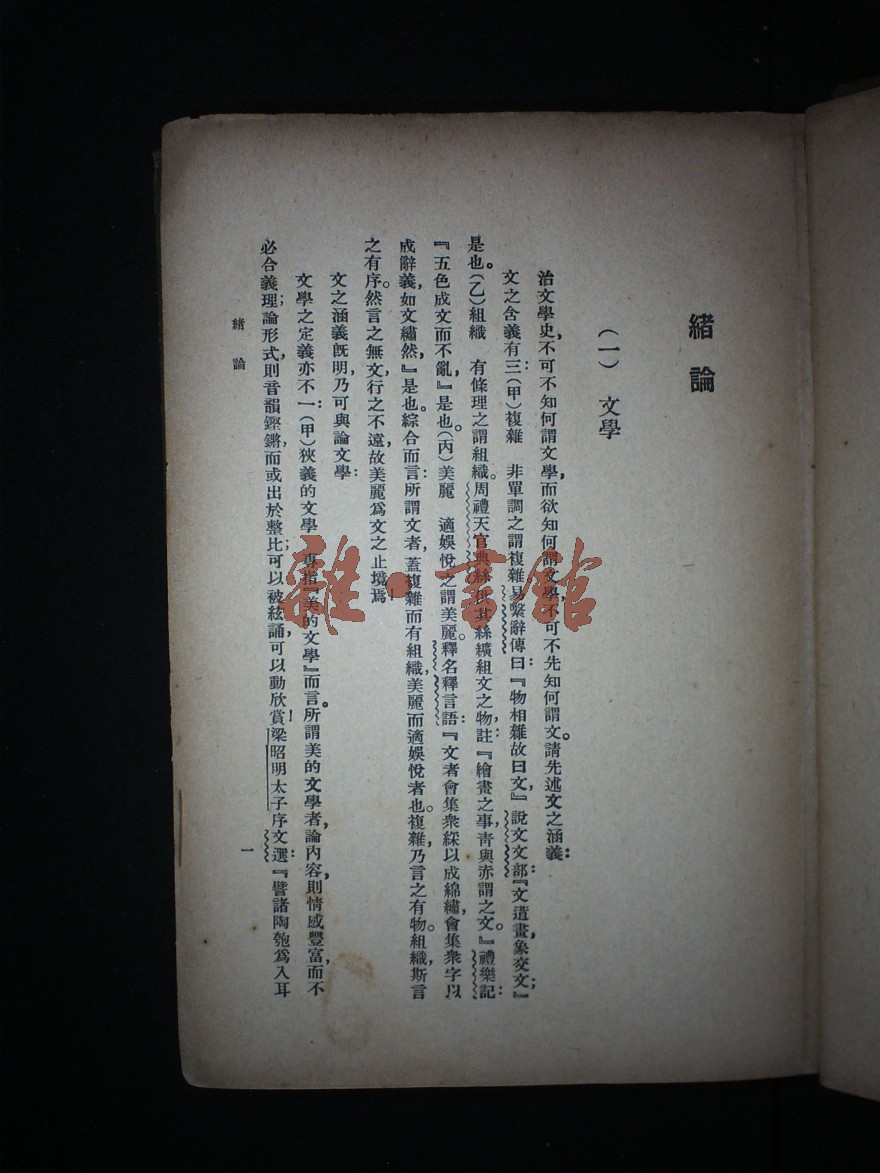 緒論
（一）　文學
治文學史，不可不知何謂文學，而欲知何謂文學，不可不先知何謂文。請先述文之涵義：
文之含義有三：（甲）複雜　非單調之謂複雜。易繫辭傳曰：『物相雜故曰文，』說文文部：『文遺畫，象交文』
是也。（乙）組織　有條理之謂組織。周禮天官典絲：供其絲纊組文之物，註：『繪畫之事，靑與赤謂之文。』禮樂記：
『五色成文而不亂，』是也。（丙）美麗　適娛悅之謂美麗。釋名釋言語：『文者會集衆綵以成綿繡，會集衆字以
成辭義，如文繡然，』是也。綜合而言：所謂文者，蓋複雜而有組織，美麗而適娛悅者也。複雜，乃言之有物。組織，斯言
之有序。然言之無文，行之不遠，故美麗爲文之止境焉。
文之涵義旣明，乃可與論文學：
文學之定義亦不一：（甲）狹義的文學　專指『美的文學』而言。所謂美的文學者，論內容，則情感豐富，而不
必合義理；論形式，則音韻鏗鏘，而或出於整比；可以被絃誦，可以動欣賞！梁昭明太子序文選：『譬諸陶匏爲入耳
緒論
一
雜·書館